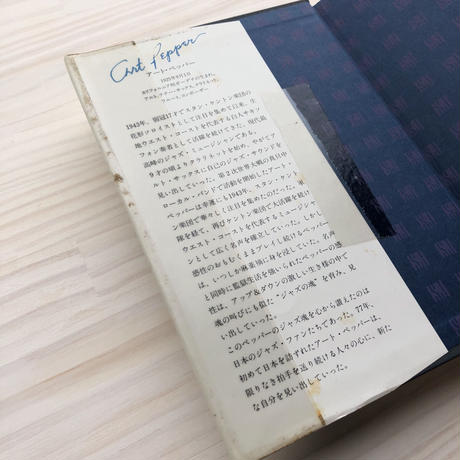 Art Pepper
アート・ペッパー
1925年9月1日
カリフォルニア州ガーデナ生まれ。
アルト、テナー・サックス、クラリネット、
フルート、コンポーザー。
1943年、弱冠17才でスタン・ケントン楽団の
花形ソロイストとして注目を集めて以来、生
地ウエスト・コーストを代表する白人サキソ
フォン奏者として活躍を続けてきた、現代最
高峰のジャズ・ミュージシャンである。
9才の頃よりクラリネットを始め、やがてア
ルト・サックスに自己のジャズ・サウンドを
見い出していった。第2次世界大戦の真只中
ローカル・バンドで活動を開始したアート・
ペッパーは幸運にも1943年、スタン・ケント
ン楽団で華々しく注目を集めたのだった。軍
隊を経て、再びケントン楽団で大活躍を続け、
ウエスト・コーストを代表するミュージシャ
ンとして広く名声を確立していった。しかし、
感性のおもむくままプレイし続けるペッパー
は、いつしか麻薬禍に身を浸していた。名声
と同時に監獄生活を強いられたペッパーの感
性は、アップ&ダウンの激しい生き様の中で
魂の叫びにも似た“ジャズの魂”を育み、見
い出していった。
このペッパーのジャズ魂を心から讃えたのは
日本のジャズ・ファンたちであった。77年、
初めて日本を訪ずれたアート・ペッパーは、
限りなき拍手を送り続ける人々の心に、新た
な自分を見い出していった。